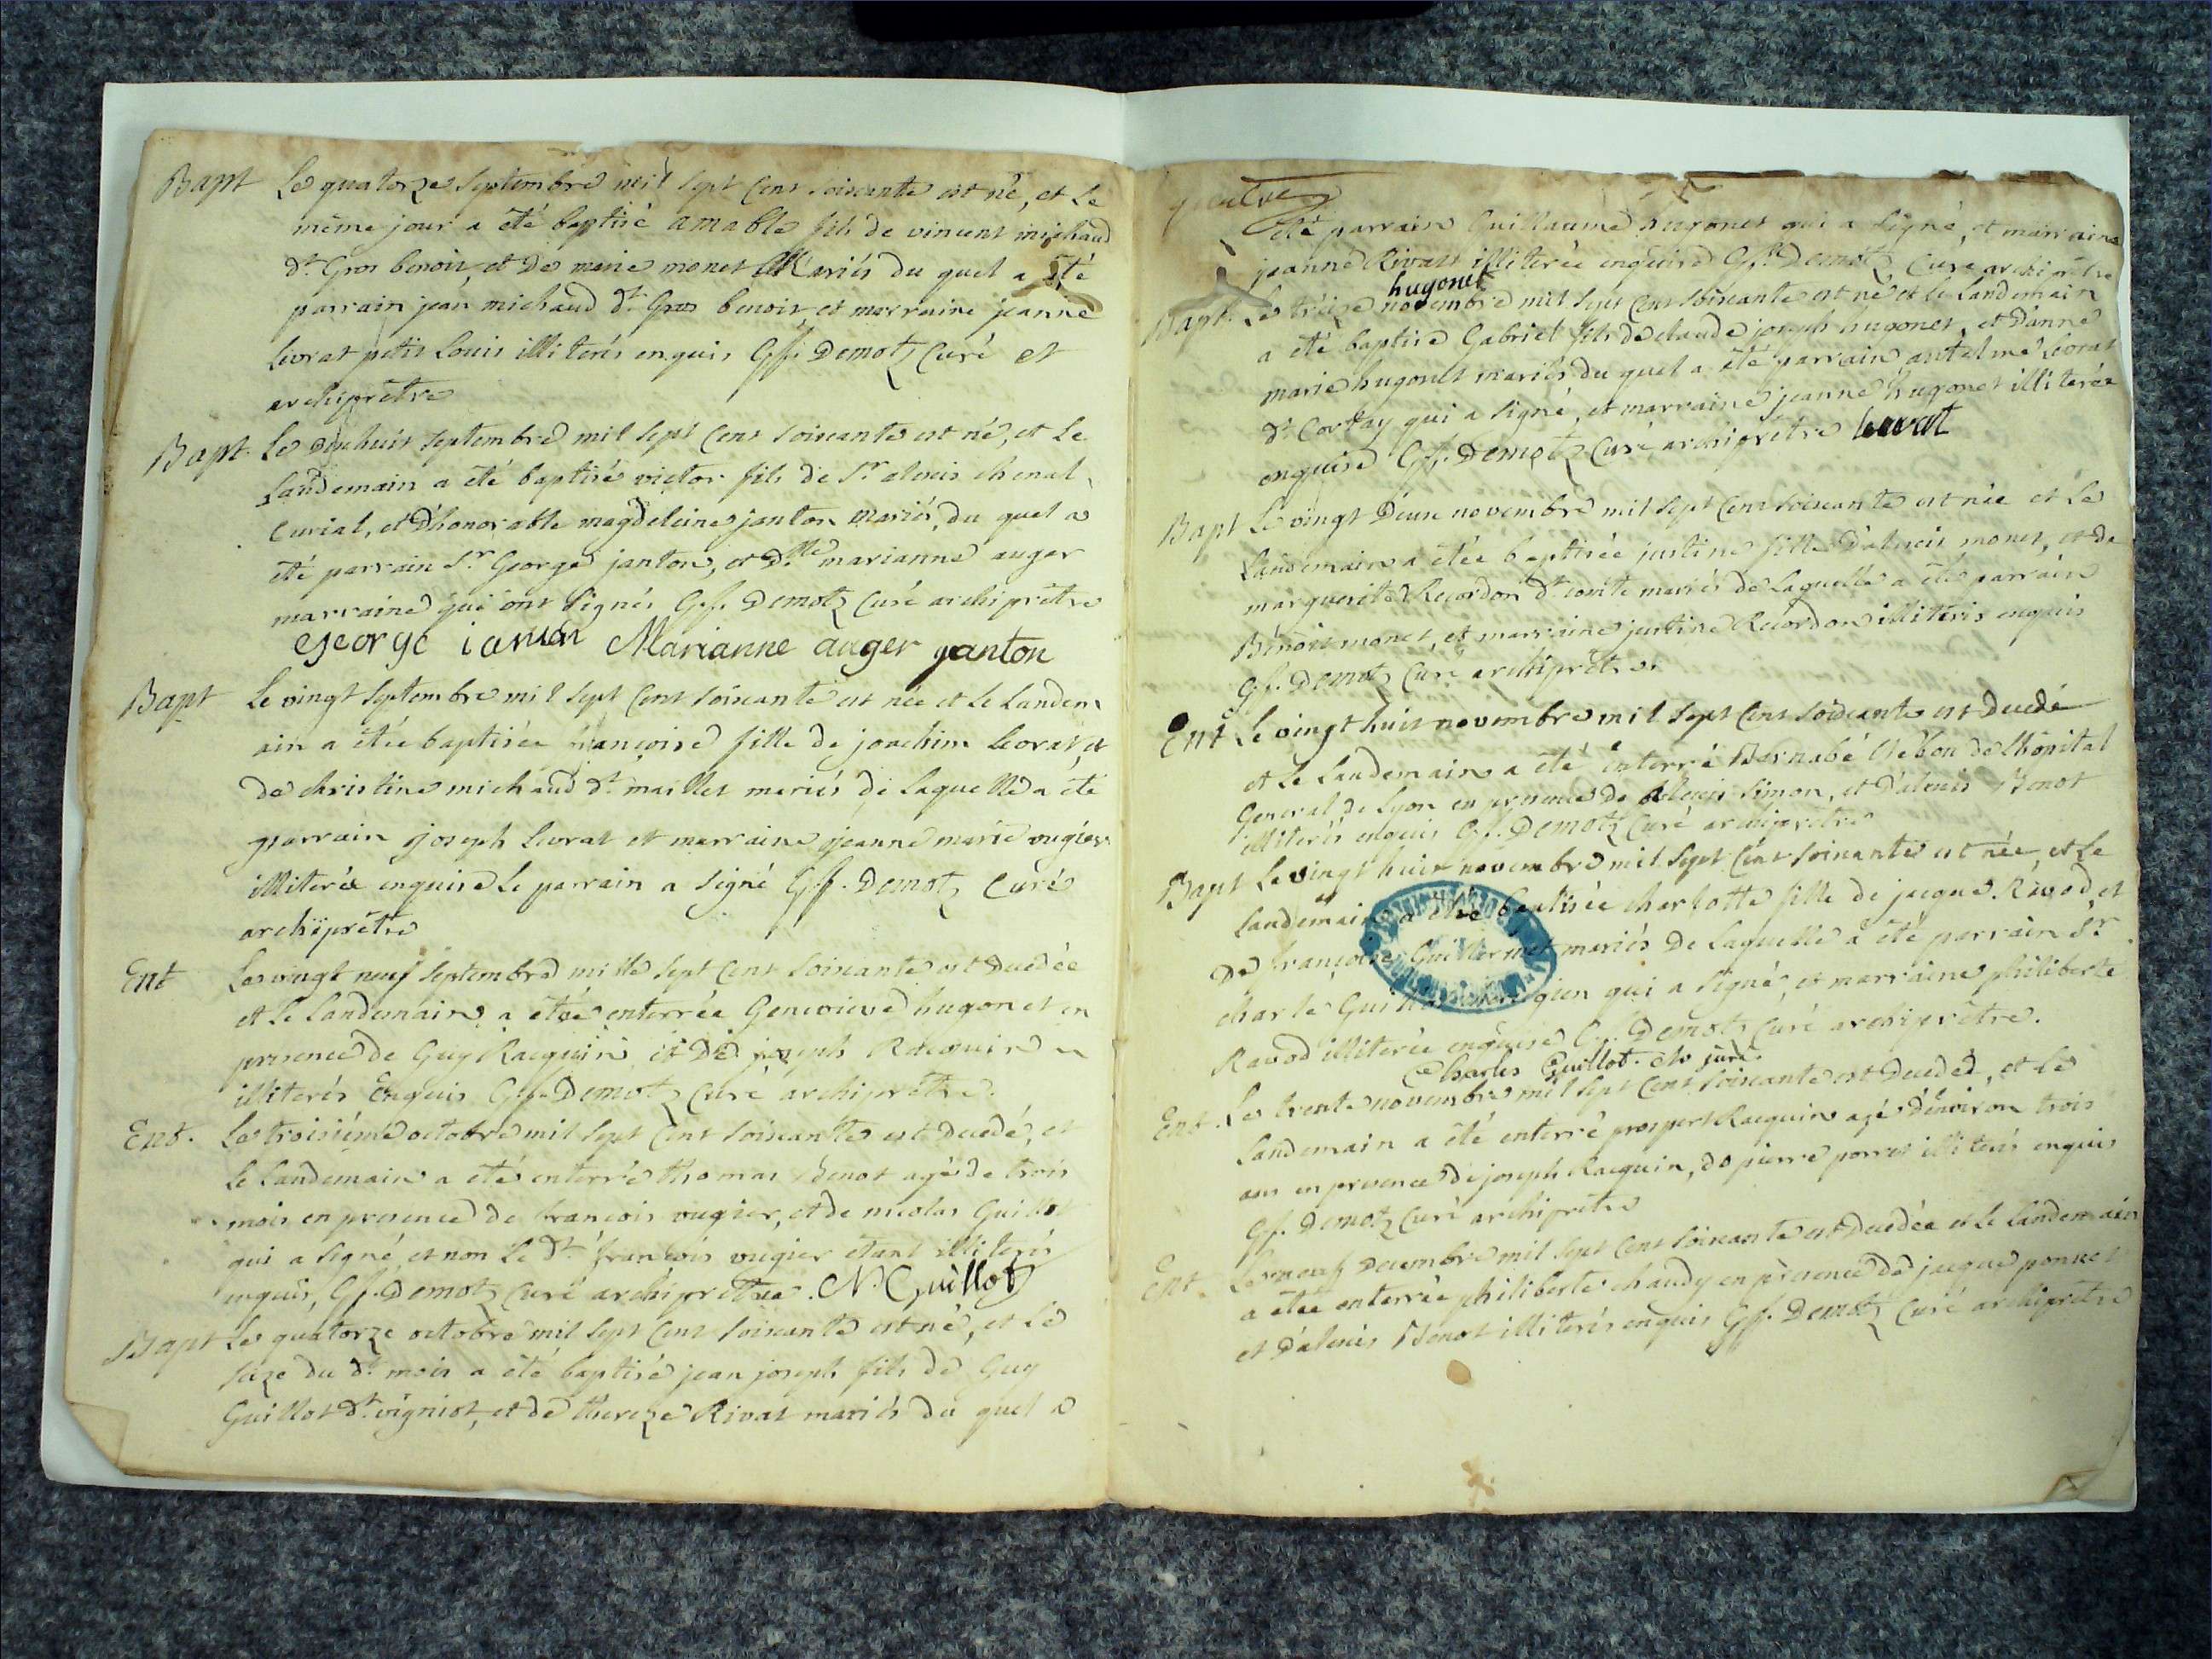 Bapt Le quatorze septembre mil sept cent soixante est né, et le
même jour a été baptisé amable fils de vincent michaud
dt. Gros benoit, et de marie monet Mariés du quel a été
parrain jean michaud dt. Gros benoit, et marraine jeanne
levrat petit Louis illiterés enquis Gf. Demotz Curé et
archiprêtre
Bapt. Le dixhuit septembre mil sept cent soixante est né, et le
landemain a été baptisé victor fils de Sr. alexis chenal
Curial, et d'honorable magdeleine janton mariés, du quel a
été parrain Sr. George janton, et dlle. marianne auger
marraine qui ont signés Gf. Demotz Curé archiprêtre
George ianton Marianne auger janton
Bapt Le vingt septembre mil sept cent soixante est née et le landem
ain a étée baptisée françoise fille de joachim levrat, et
de christine michaud dt. maillet mariés de laquelle a été
parrain joseph levrat et marraine jeanne marie vugier
illiterée enquise le parrain a signé Gf. Demotz Curé
archiprêtre
Ent Le vingt neuf septembre mille sept cent soixante est decedée
et le landemain a étée enterrée Genevieve hugonet en
presence de Guy Racquin et de joseph Racquin
illiterés enquis Gf. Demotz Curé archiprêtre.
Ent. Le troisième octobre mil sept cent soixante est decedé, et
le landemain a été enterré thomas Benot agé de trois
mois en presence de francois vugier, et de nicolas Guillot
qui a signé, et non le dt. francois vugier etant illiterés
enquis, Gf. Demotz Curé archiprêtre. N. Guillot
Bapt Le quatorze octobre mil sept cent soixante est né, et le
seze du dt. mois a été baptisé jean joseph fils de Guy
Guillot dt. vigniot, et de thereze Rivat mariés du quel a
été parrain Guillaume hugonet qui a signé, et marraine
jeanne Rivat illiterée enquise Gf. Demotz Curé archiprêtre
hugonet
Bapt. Le treize novembre mil sept cent soixante est né et le landemain
a été baptisé Gabriel fils de claude joseph hugonet, et d'anne
marie hugonet mariés du quel a été parrain antelme levrat
dt. Cortay qui a signé, et marraine jeanne hugonet illiterée
enquise Gf. Demotz Curé archiprêtre levrat
Bapt Le vingt deux novembre mil sept cent soixante est née et le
landemain a étée baptisée justine fille d'alexis monet, et de
marguerite Recordon dt. comte mariés de laquelle a été parrain
Benoit monet, et marraine justine Recordon illiterés enquis
Gf. Demotz Curé archiprêtre
Ent Le vingt huit novembre mil sept cent soixante est decedé
et le landemain a été enterré Bernabé de l'hôpital
General de lyon en presence de alexis simon, et d'alexis Benot
illiterés enquis Gf. Demotz Curé archiprêtre
Bapt Le vingt huit novembre mil sept cent soixante est née, et le
landemain a été baptisée charlotte fille de jacque Ravod, et
de françoise Guillermet mariés de laquelle a été parrain Sr.
charle qui a signé, et marraine philiberte
Ravod illiterée enquise Gf. Demotz Curé archiprêtre.
Charles Guillot
Ent. Le trente novembre mil sept cent soixante est decedé, et le
landemain a été enterré prospert Racquin agé d'environ trois
ans en presence de joseph Racquin, de pierre porret illiterés enquis
Gf. Demotz Curé archiprêtre
Ent. Le neuf decembre mil sept cent soixante est decedée et le landemain
a étée enterrée philiberte chaudy en presence de jacque ponnet
et d'alexis Benot illiterés enquis Gf. Demotz Curé archiprêtre